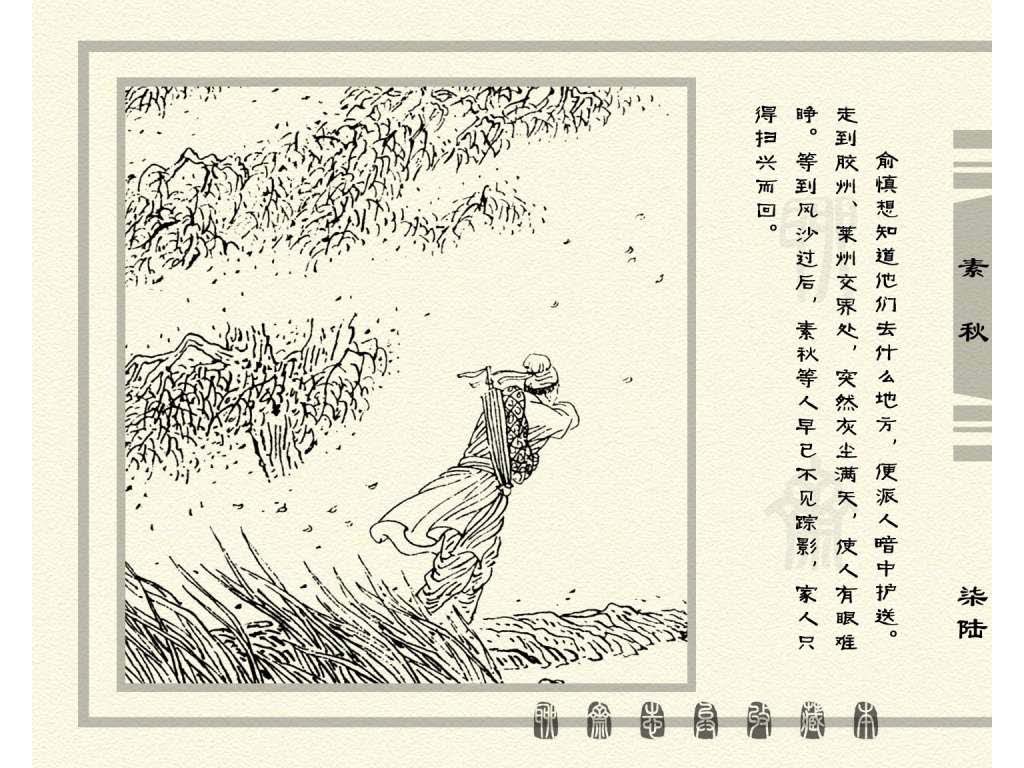 俞慎想知道他们去什么地方，便派人暗中护送。
走到胶州、莱州交界处，突然灰尘满天，使人有眼难
睁。等到风沙过后，素秋等人早已不见踪影，家人只
得扫兴而回。
素秋
柒陆
聊斋志异
藏本